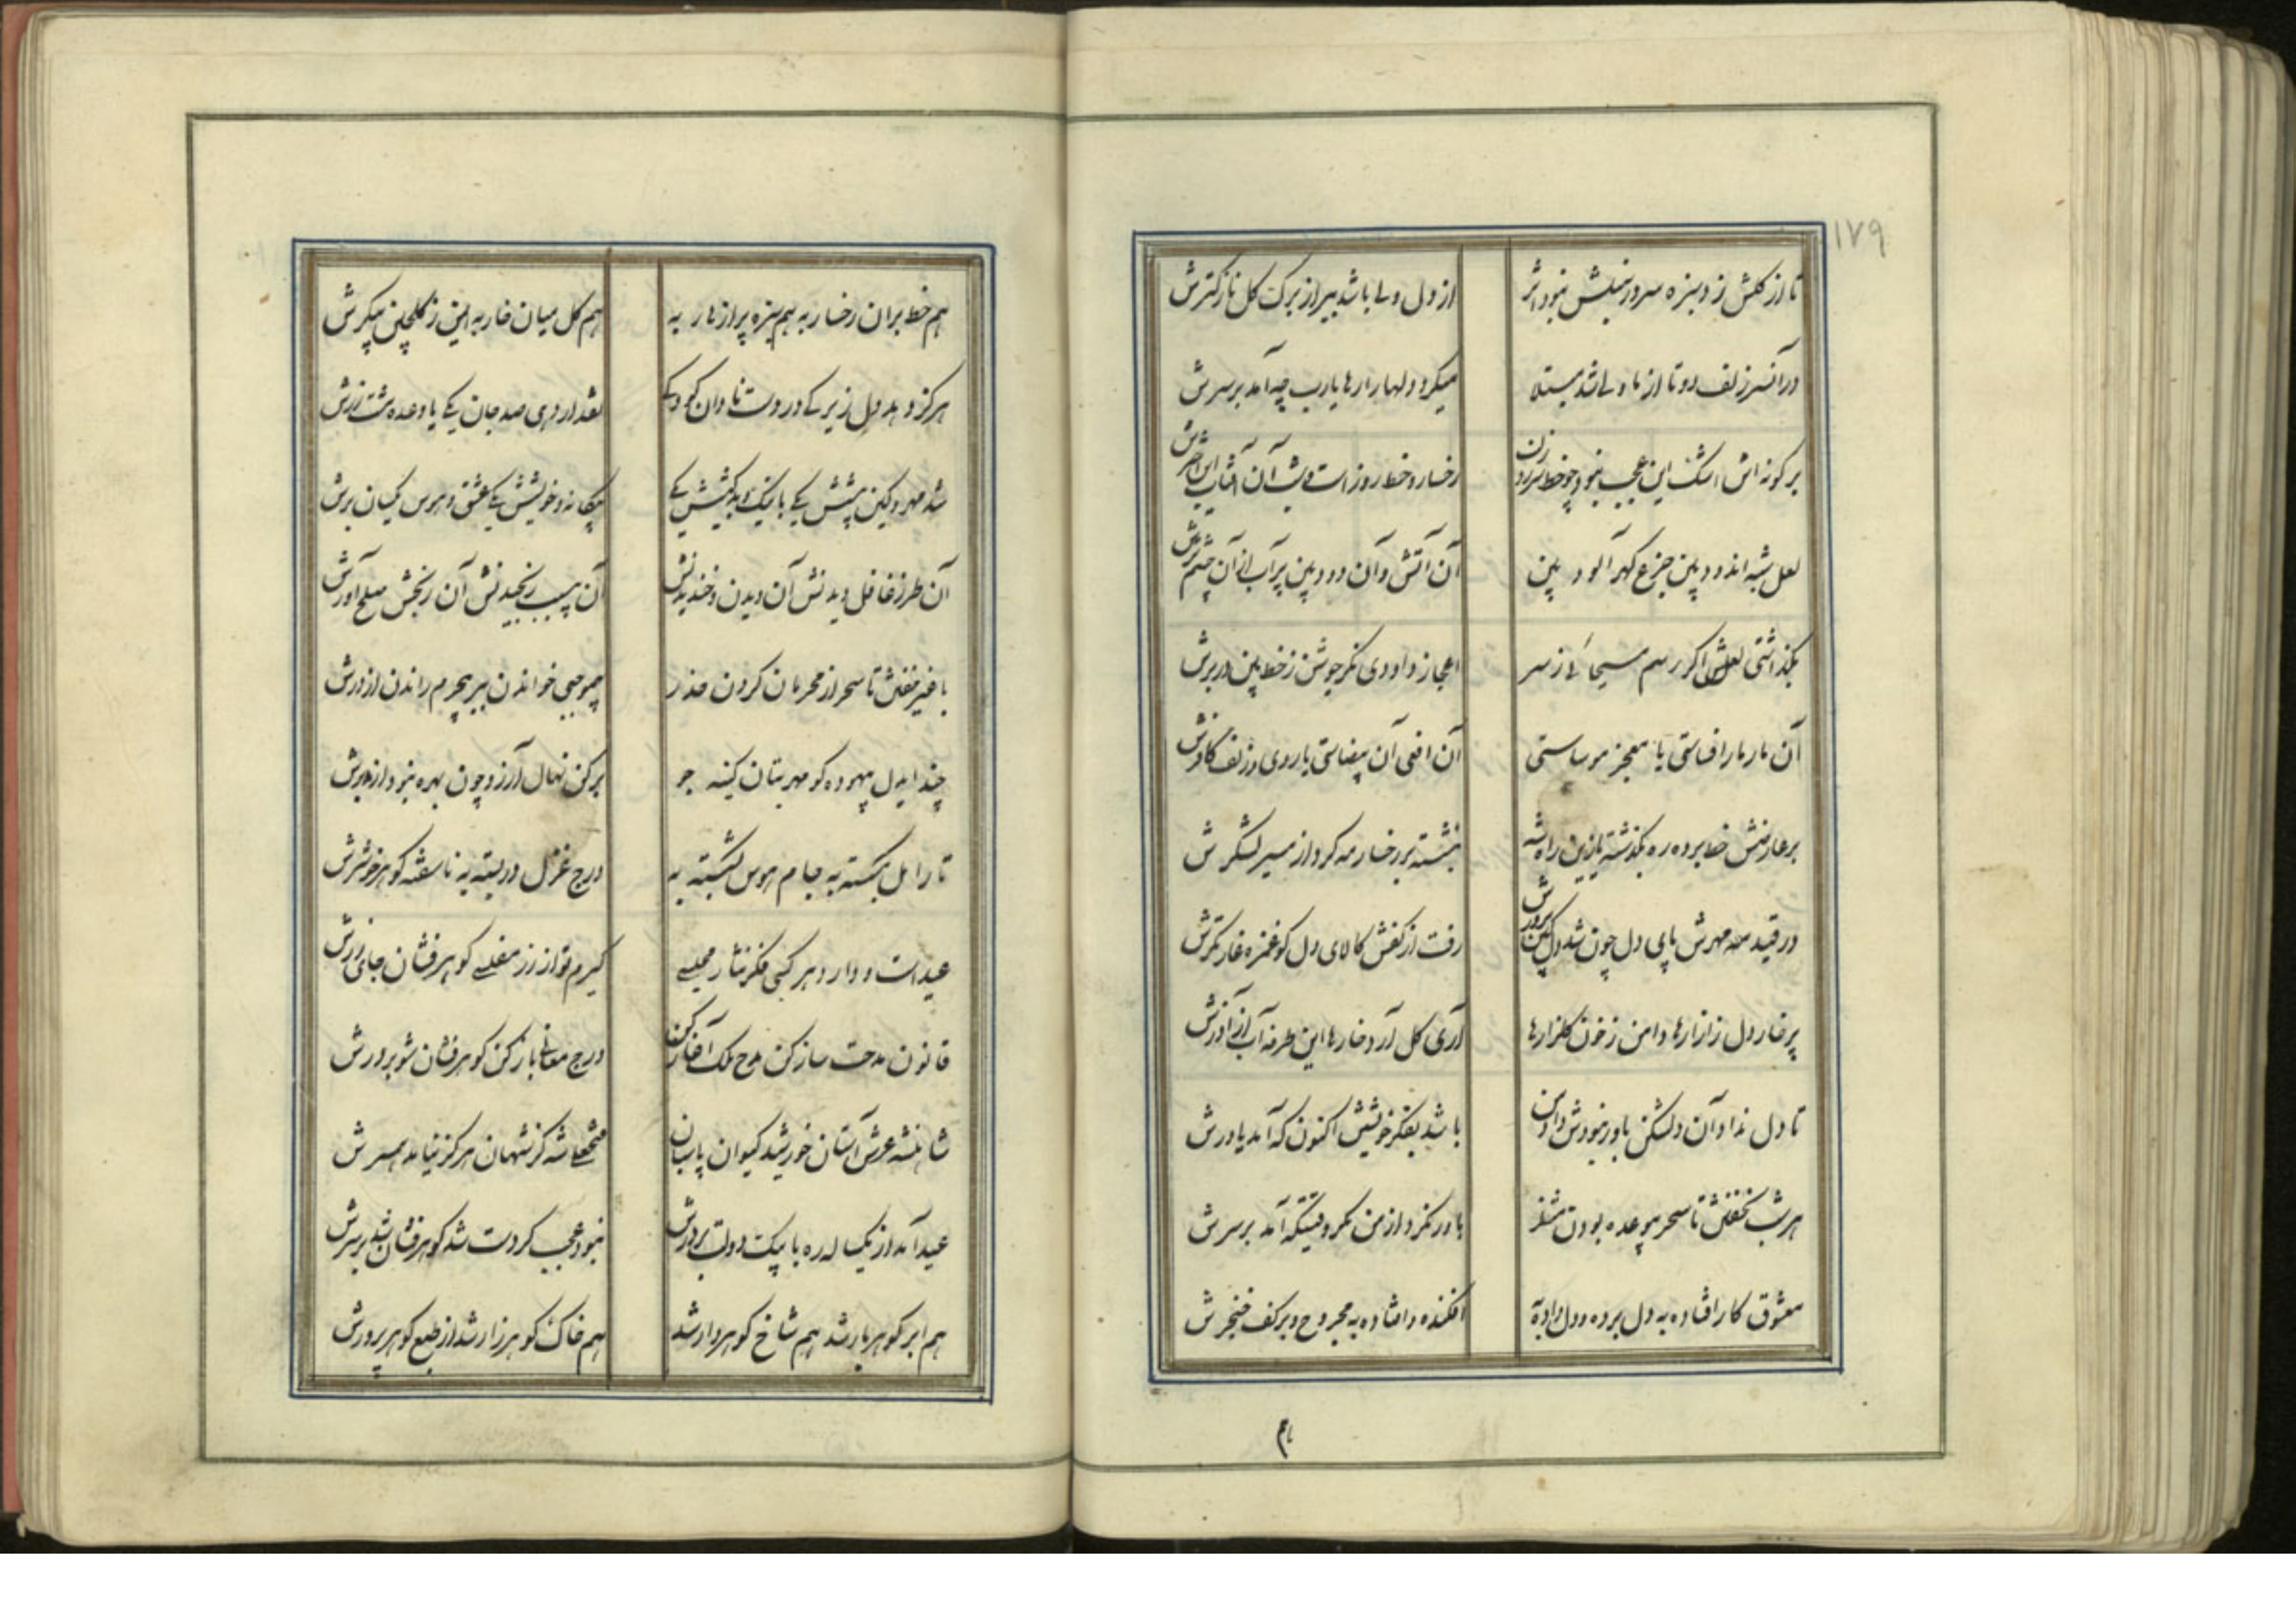 ۱۷۹
تا از گلش زد سبزه سر در خیلش نبود اثر
از دل ولی باشد بیر از برگ گل نازکترش
در آن سر زلف دوتا از ما دلی شد مبتلا
میکرد دلها را رها یارب چه آمد بر سرش
بر گونه اش اشک این عجب نبود چو خط سر زد ز لب
رخسار و خط روز است و شب آن آفتاب این اخترش
لعل شبه اندود بین جزع گهر آلود بین
آن آتش و آن دود بین پر آب از آن چشم ترش
بگذاشتی لعلش اگر رسم مسیحائی ز سر
اعجاز داودی نگر جوشن ز خط بین در برش
آن مار مار افساستی یا معجز موساستی
آن افعی آن بیضاستی یا روی و زلف کافرش
بر عارضش خط برده ره بگذشته
بنشسته بر رخسار مه گرد از مسیر لشکرش
در قید مهرش پای دل چون شد دل کین پرورش
رفت از کفش کالای دل کو غمزه غارتگرش
پر خار دل ز آزارها دامن ز خون گلزارها
آری گل آرد خارها این طرفه آب از آذرش
تا دل نداد آن دلشکن باور نبودش داد من
باشد بفکر خویشتن اکنون که آمد یاورش
هر شب نخفتن تا سحر بر وعده بودن منتظر
باور نکرد از من مگر وقتیکه آمد بر سرش
معشوق کار افتاده به دل برده و دل داده به
افکنده و افتاده به مجروح و بر کف خنجرش
هم
هم خط بر آن رخسار به هم سبزه پر ازهار به
هم گل میان خار به ایمن ز گلچین پیکرش
هرگز دهد دل زیرکی در دست نادان کودکی
نقد ار دهی صد جان یکی با وعده مشت زرش
شد مهر و کین پیشش یکی با نیک و بد کیشش یکی
بیگانه و خویشش یکی عشق و هوس یکسان برش
آن طرز غافل دیدنش آن دیدن و خندیدنش
آن بی سبب رنجیدنش آن رنجش صلح آورش
با غیر خفتن تا سحر از محرمان کردن حذر
بی موجبی خواندن ببر بی جرم راندن از درش
چند ایدل بیهوده گو مهر بتان کینه جو
برکن نهال آرزو چون بهره نبود از برش
تار امل بگسسته به جام هوس بشکسته به
درج غزل در بسته به ناسفته گوهر خوشترش
عید است و دارد هر کسی فکر نثار مجلسی
گیرم تو از زر مفلسی گوهر فشان جای زرش
قانون مدحت ساز کن مدح ملک آغاز کن
درج معانی باز کن گوهر فشان شو بر درش
شاهنشه عرش آستان خورشید کیوان پاسبان
فتحعلی شه کز شهان هرگز نیامد همسرش
عید آمد از یکساله ره با پیک دولت بر درش
نبود عجب کز دست شه گوهر فشان شد بر سرش
هم ابر گوهر بار شد هم شاخ گوهر وار شد
هم خاک گوهر زار شد از طبع گوهر پرورش